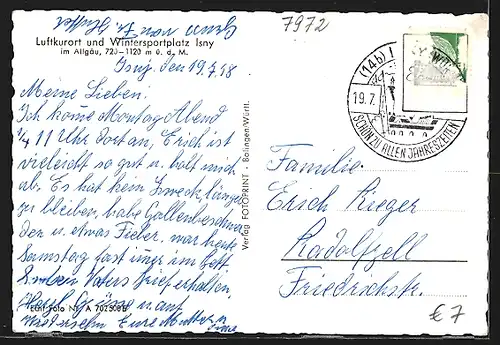 7972
Luftkurort und Wintersportplatz Isny
im Allgäu, 720–1120 m ü. d. M.
Isny, den 19.7.58
Meine Lieben!
Ich komme Montag Abend
¼ 11 Uhr dort an, Erich ist
vielleicht so gut u. holt mich
ab. Es hat kein Zweck, länger
zu bleiben, habe Gallenbeschwer
den u. etwas Fieber, war heute
Samstag fast immer im Bett
Vaters Brief erhalten.
Herzl. Grüsse u. auf
Wiedersehn Eure Mutter u.
Echt Foto Nr. A 7025081
Verlag FOTOPRINT - Balingen/Württ.
(14b) I
19.7.
SCHÖN ZU ALLEN JAHRESZEITEN
Familie
Erich Rieger
Radolfzell
Friedrichstr.
€ 7